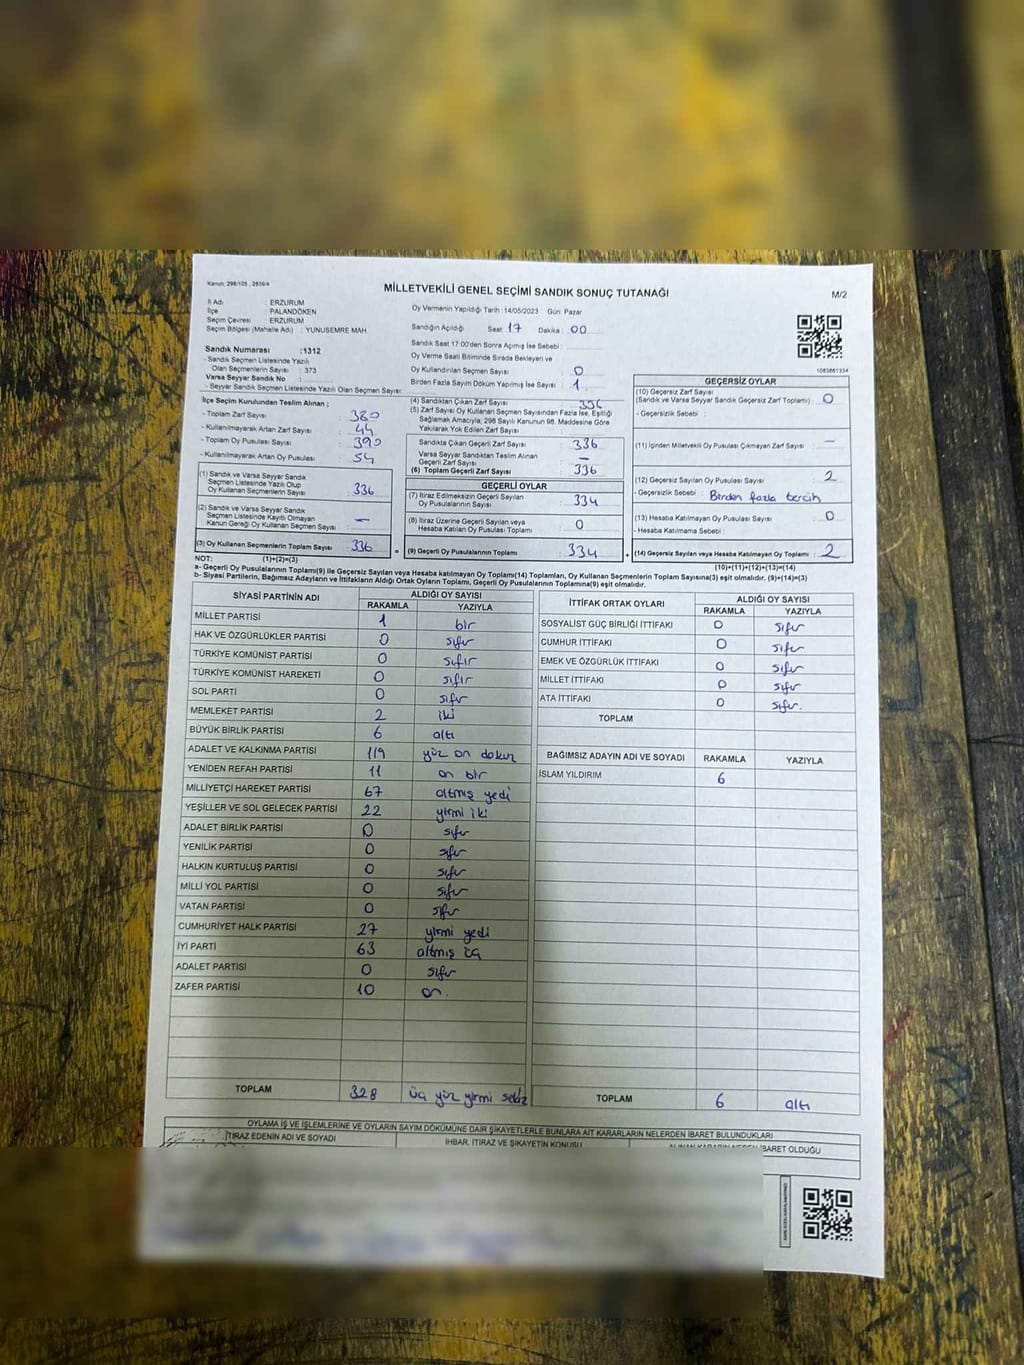 Kanun: 298/105 , 2839/4
MİLLETVEKİLİ GENEL SEÇİMİ SANDIK SONUÇ TUTANAĞI
M/2
İl Adı : ERZURUM
İlçe : PALANDÖKEN
Seçim Çevresi : ERZURUM
Seçim Bölgesi (Mahalle Adı) : YUNUSEMRE MAH.
Sandık Numarası :1312
- Sandık Seçmen Listesinde Yazılı
Olan Seçmenlerin Sayısı : 373
Varsa Seyyar Sandık No :
- Seyyar Sandık Seçmen Listesinde Yazılı Olan Seçmen Sayısı:
Oy Vermenin Yapıldığı Tarih :14/05/2023 Gün: Pazar
Sandığın Açıldığı Saat 17 Dakika 00
Sandık Saat 17:00'den Sonra Açımış İse Sebebi:
Oy Verme Saati Bitiminde Sırada Bekleyen ve
Oy Kullandırılan Seçmen Sayısı : 0
Birden Fazla Sayım Döküm Yapılmış İse Sayısı : 1
İlçe Seçim Kurulundan Teslim Alınan ;
- Toplam Zarf Sayısı : 380
- Kullanılmayarak Artan Zarf Sayısı : 44
- Toplam Oy Pusulası Sayısı : 390
- Kullanılmayarak Artan Oy Pusulası : 54
(1) Sandık ve Varsa Seyyar Sandık
Seçmen Listesinde Yazılı Olup
Oy Kullanan Seçmenlerin Sayısı : 336
(2) Sandık ve Varsa Seyyar Sandık
Seçmen Listesinde Kayıtlı Olmayan
Kanun Gereği Oy Kullanan Seçmen Sayısı : —
(3) Oy Kullanan Seçmenlerin Toplam Sayısı 336
(1)+(2)=(3)
(4) Sandıktan Çıkan Zarf Sayısı : 336
(5) Zarf Sayısı Oy Kullanan Seçmen Sayısından Fazla İse, Eşitliği
Sağlamak Amacıyla, 298 Sayılı Kanunun 98. Maddesine Göre
Yakılarak Yok Edilen Zarf Sayısı :
Sandıkta Çıkan Geçerli Zarf Sayısı : 336
Varsa Seyyar Sandıktan Teslim Alınan
Geçerli Zarf Sayısı : —
(6) Toplam Geçerli Zarf Sayısı : 336
GEÇERLİ OYLAR
(7) İtiraz Edilmeksizin Geçerli Sayılan
Oy Pusulalarının Sayısı : 334
(8) İtiraz Üzerine Geçerli Sayılan veya
Hesaba Katılan Oy Pusulası Toplamı : 0
= (9) Geçerli Oy Pusulalarının Toplamı : 334
1083861334
GEÇERSİZ OYLAR
(10) Geçersiz Zarf Sayısı
(Sandık ve Varsa Seyyar Sandık Geçersiz Zarf Toplamı) : 0
- Geçersizlik Sebebi :
(11) İçinden Milletvekili Oy Pusulası Çıkmayan Zarf Sayısı : —
(12) Geçersiz Sayılan Oy Pusulası Sayısı : 2
- Geçersizlik Sebebi : Birden fazla tercih
(13) Hesaba Katılmayan Oy Pusulası Sayısı : 0
- Hesaba Katılmama Sebebi :
+ (14) Geçersiz Sayılan veya Hesaba Katılmayan Oy Toplamı : 2
(10)+(11)+(12)+(13)=(14)
NOT:
a- Geçerli Oy Pusulaları Toplamı(9) ile Geçersiz Sayılan veya Hesaba katılmayan Oy Toplamı(14) Toplamları, Oy Kullanan Seçmenlerin Toplam Sayısına(3) eşit olmalıdır. (9)+(14)=(3)
b- Siyasi Partilerin, Bağımsız Adayların ve İttifakların Aldığı Ortak Oyların Toplamı, Geçerli Oy Pusulalarının Toplamına(9) eşit olmalıdır.
SİYASİ PARTİNİN ADI ALDIĞI OY SAYISI
RAKAMLA YAZIYLA
MİLLET PARTİSİ 1 bir
HAK VE ÖZGÜRLÜKLER PARTİSİ 0 sıfır
TÜRKİYE KOMÜNİST PARTİSİ 0 sıfır
TÜRKİYE KOMÜNİST HAREKETİ 0 sıfır
SOL PARTİ 0 sıfır
MEMLEKET PARTİSİ 2 iki
BÜYÜK BİRLİK PARTİSİ 6 altı
ADALET VE KALKINMA PARTİSİ 119 yüz on dokuz
YENİDEN REFAH PARTİSİ 11 on bir
MİLLİYETÇİ HAREKET PARTİSİ 67 altmış yedi
YEŞİLLER VE SOL GELECEK PARTİSİ 22 yirmi iki
ADALET BİRLİK PARTİSİ 0 sıfır
YENİLİK PARTİSİ 0 sıfır
HALKIN KURTULUŞ PARTİSİ 0 sıfır
MİLLİ YOL PARTİSİ 0 sıfır
VATAN PARTİSİ 0 sıfır
CUMHURİYET HALK PARTİSİ 27 yirmi yedi
İYİ PARTİ 63 altmış üç
ADALET PARTİSİ 0 sıfır
ZAFER PARTİSİ 10 on.
TOPLAM 328 üç yüz yirmi sekiz
İTTİFAK ORTAK OYLARI ALDIĞI OY SAYISI
RAKAMLA YAZIYLA
SOSYALİST GÜÇ BİRLİĞİ İTTİFAKI 0 sıfır
CUMHUR İTTİFAKI 0 sıfır
EMEK VE ÖZGÜRLÜK İTTİFAKI 0 sıfır
MİLLET İTTİFAKI 0 sıfır
ATA İTTİFAKI 0 sıfır.
TOPLAM
BAĞIMSIZ ADAYIN ADI VE SOYADI RAKAMLA YAZIYLA
İSLAM YILDIRIM 6
TOPLAM 6 altı
OYLAMA İŞ VE İŞLEMLERİNE VE OYLARIN SAYIM DÖKÜMÜNE DAİR ŞİKAYETLERLE BUNLARA AİT KARARLARIN NELERDEN İBARET BULUNDUKLARI
İTİRAZ EDENİN ADI VE SOYADI İHBAR, İTİRAZ VE ŞİKAYETİN KONUSU ALINAN KARARIN NEDEN İBARET OLDUĞU